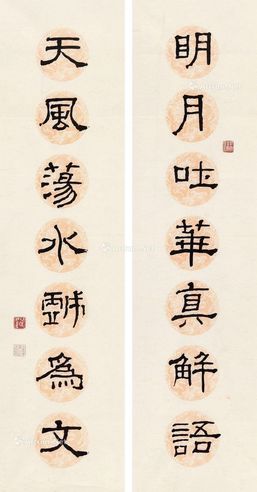 明月吐華真解語
天風蕩水戲爲文